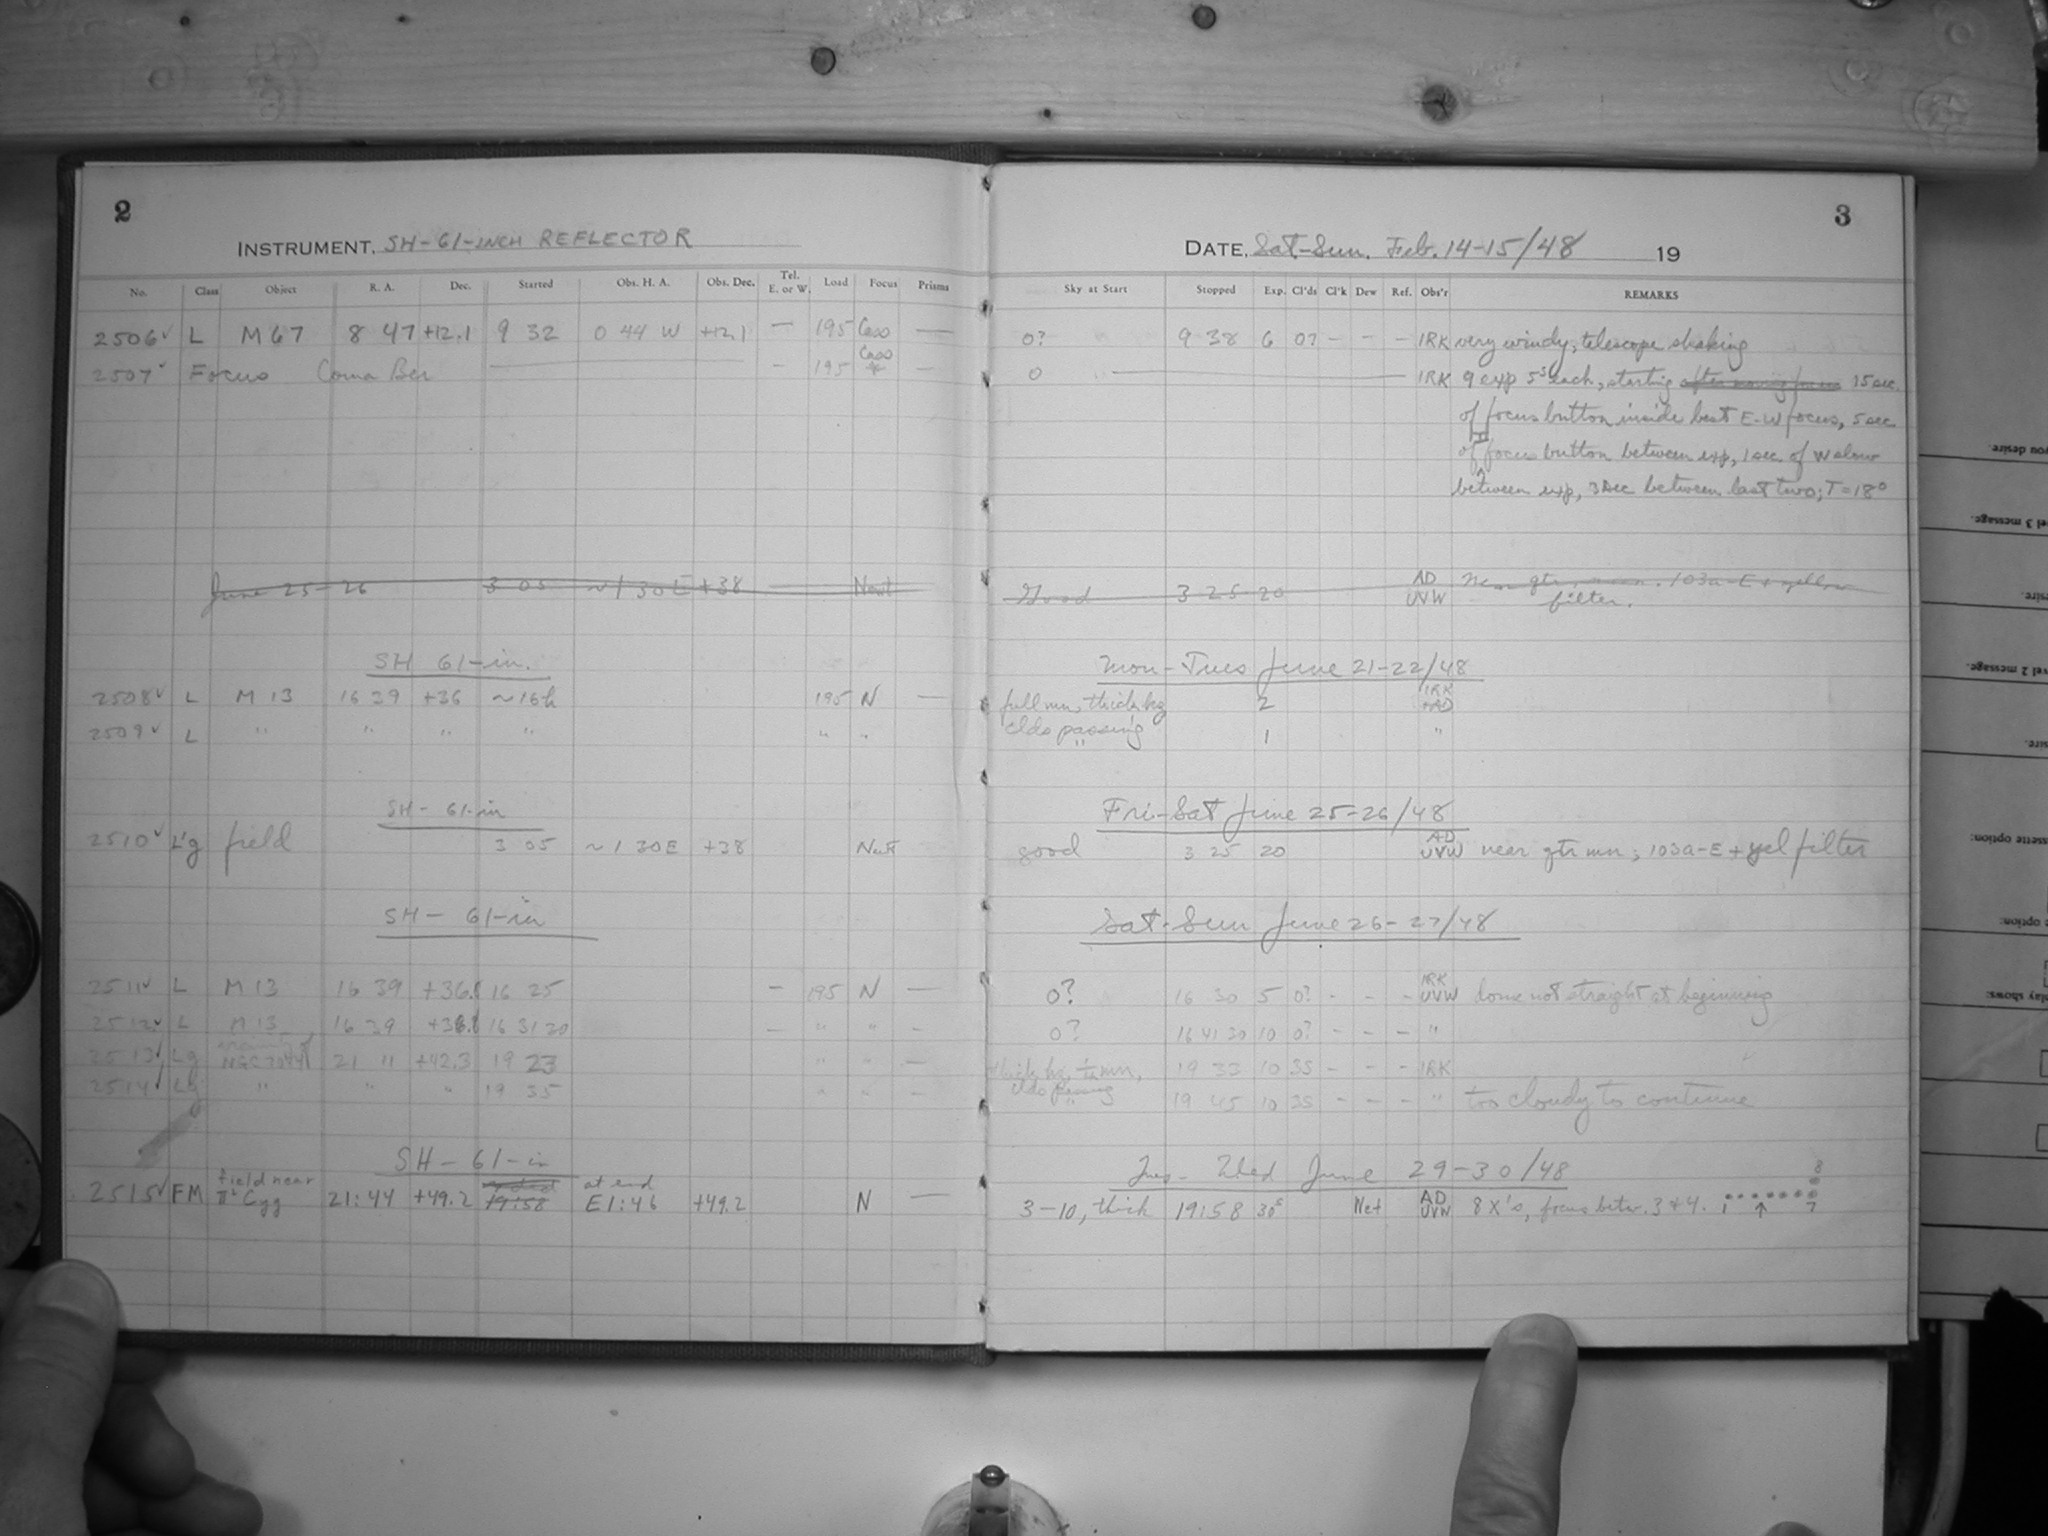 2
INSTRUMENT, SH-61-INCH REFLECTOR
No. Class Object R. A. Dec. Started Obs. H. A. Obs. Dec. Tel. E. or W. Load Focus Prisms
2506✓ L M67 8 47 +12.1 9 32 0 44 W +12.1 — 195 Cass —
2507✓ Focus Coma Ber — — 195 Cass * —
June 25-26 3 05 ~1 30E +38 — Newt
SH 61-in.
2508✓ L M 13 16 39 +36 ~16h 195 N —
2509✓ L " " " " " "
SH- 61-in
2510✓ L'g field 3 05 ~1 30E +38 Newt
SH- 61-in
2511✓ L M 13 16 39 +36. 16 25 — 195 N —
2512✓ L M 13 16 39 16 31 20 — " " —
2513✓ Lg 21 11 +42.3 19 23 " " —
2514✓ Lg " " " 19 35 " " —
SH- 61-in
2515✓ FM field near π² Cyg 21:44 +49.2 19:58 at end E1:46 +49.2 N —
3
DATE, Sat-Sun. Feb. 14-15/48 19
Sky at Start Stopped Exp. Cl'ds Cl'k Dew Ref. Obs'r REMARKS
0? 9 38 6 0? - - - IRK very windy, telescope shaking
0 — IRK 9 exp 5s each, starting 15 sec.
of focus button inside best E-W focus, 5 sec
of focus button between exp, 1 sec. of W slow
between exp, 3 sec between last two; T=18°
Good 3 25 20 AD UVW near qtr moon. 103a-E + yellow
filter.
Mon-Tues June 21-22/48
full mn, thick hz 2 IRK +AD
clds passing
" 1 "
Fri-Sat June 25-26/48
good 3 25 20 AD UVW near qtr mn; 103a-E + yel filter
Sat-Sun June 26-27/48
0? 16 30 5 0? - - - IRK UVW dome not straight at beginning
0? 16 41 30 10 0? - - - "
thick hz, mn, 19 33 10 3S - - - IRK
clds passing
" 19 45 10 3S - - - " too cloudy to continue
Tues-Wed June 29-30/48
3-10, thick 19:58 30s Net AD UVW 8 X's, focus betw. 3+4. 1 ↑ 7 8
you desire
el 3 message.
sire.
vel 2 message.
sire.
ssette option:
option:
play shows: